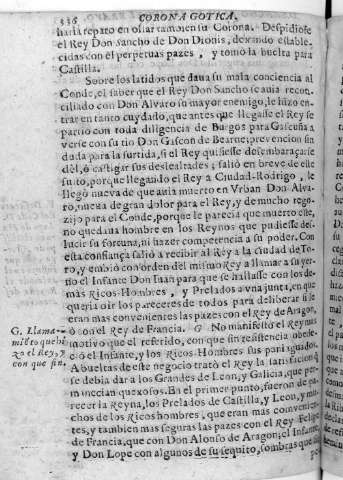 336 CORONA GOTICA.
haria reparo en ossar tambien su Corona. Despidiose
el Rey Don Sancho de Don Dionis, dexando estable-
cidas con el perpetuas pazes, y tomò la buelta para
Castilla.
Sobre los latidos que daua su mala conciencia al
Conde, el saber que el Rey Don Sancho se auia recon-
ciliado con Don Alvaro su mayor enemigo, le hizo en-
trar en tanto cuydado, que antes que llegasse el Rey se
partiò con toda diligencia de Burgos para Gascuña a
verse con su tio Don Gascon de Bearne, prevencion sin
duda para la surtida, si el Rey quisiesse desembaraçarse
dèl, ò castigar sus deslealtades; saliò en breve de este
susto, porque llegando el Rey à Ciudad-Rodrigo, le
llegò nueva de que auia muerto en Vrban Don Alva-
ro, nueva de gran dolor para el Rey, y de mucho rego-
zijo para el Conde, porque le parecia que muerto este,
no quedaua hombre en los Reynos que pudiesse des-
lucir su fortuna, ni hazer competencia a su poder. Con
esta confiança saliò a recibir al Rey a la ciudad de To-
ro, y embiò con orden del mismo Rey a llamar a su yer-
no el Infante Don Iuan para que se hallasse con los de-
mas Ricos-Hombres, y Prelados a vna junta, en que
queria oir los pareceres de todos para deliberar si le
eran mas convenientes las pazes con el Rey de Aragon,
ò con el Rey de Francia. G No manifestò el Rey mas
motivo que el referido, con que sin resistencia obede-
ciò el Infante, y los Ricos-Hombres sus parciales.
A bueltas de este negocio tratò el Rey la satisfacion q̃
se debia dar a los Grandes de Leon, y Galicia, que per-
manecian quexosos. En el primer punto, fueron de pa-
recer la Reyna, los Prelados de Castilla, y Leon, y mu-
chos de los Ricos hombres, que eran mas convenien-
tes, y tambien mas seguras las pazes con el Rey Felipe
de Francia, que con Don Alonso de Aragon; el Infante,
y Don Lope con algunos de su sequito, sombras que
G. Llama-
miẽto que hi-
zo el Rey, y
con que fin.